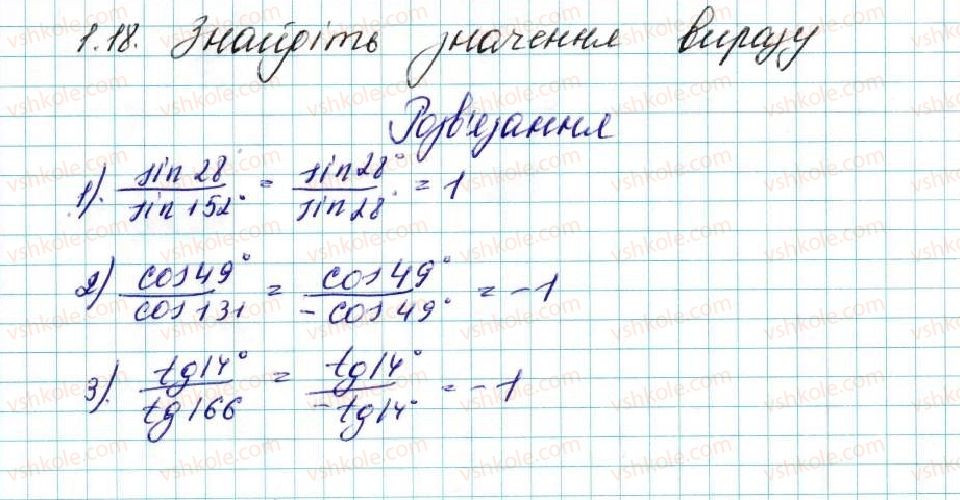 1.18. Знайдіть значення виразу
Розв'язання
1). sin 28 / sin 152° = sin 28° / sin 28° = 1
2) cos 49° / cos 131 = cos 49° / - cos 49° = -1
3). tg 14° / tg 166 = tg 14° / - tg 14° = -1